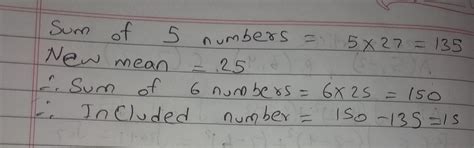 Sum of 5 numbers = 5×27 = 135
New mean = 25
∴ Sum of 6 numbers = 6×25 = 150
∴ Included number = 150 - 135 = 15